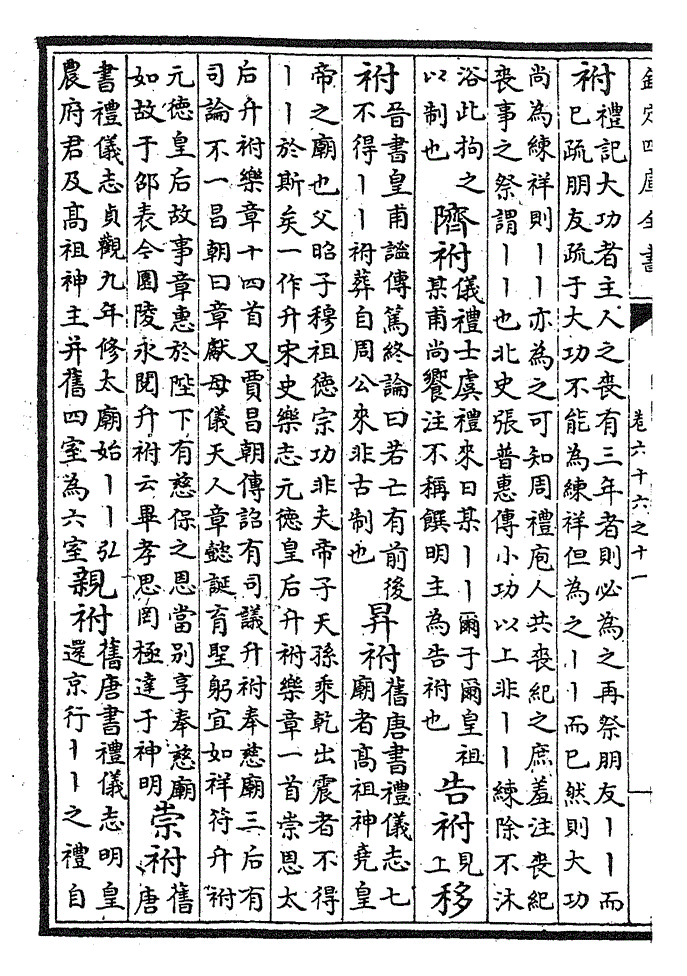 欽定四庫全書
卷六十六之十一
祔
禮記大功者主人之喪有三年者則必為之再祭朋友丨丨而
已疏朋友疏于大功不能為練祥但為之丨丨而已然則大功
尚為練祥則丨丨亦為之可知周禮庖人共喪紀之庶羞注喪紀
喪事之祭謂丨丨也北史張普惠傳小功以上非丨丨練除不沐
浴此拘之
以制也
隮祔
儀禮士虞禮來日某丨丨爾于爾皇祖
某甫尚饗注不稱饌明主為告祔也
告祔
見
上
移
祔
晉書皇甫謐傳篤終論曰若亡有前後
不得丨丨祔葬自周公來非古制也
昇祔
舊唐書禮儀志七
廟者高祖神堯皇
帝之廟也父昭子穆祖德宗功非夫帝子天孫乘乾出震者不得
丨丨於斯矣一作升宋史樂志元德皇后升祔樂章一首崇恩太
后升祔樂章十四首又賈昌朝傳詔有司議升祔奉慈廟三后有
司論不一昌朝曰章獻母儀天人章懿誕育聖躬宜如祥符升祔
元德皇后故事章惠於陛下有慈保之恩當别享奉慈廟
如故于邵表今園陵永閟升祔云畢孝思罔極達于神明
崇祔
舊
唐
書禮儀志貞觀九年修太廟始丨丨弘
農府君及高祖神主并舊四室為六室
親祔
舊唐書禮儀志明皇
還京行丨丨之禮自